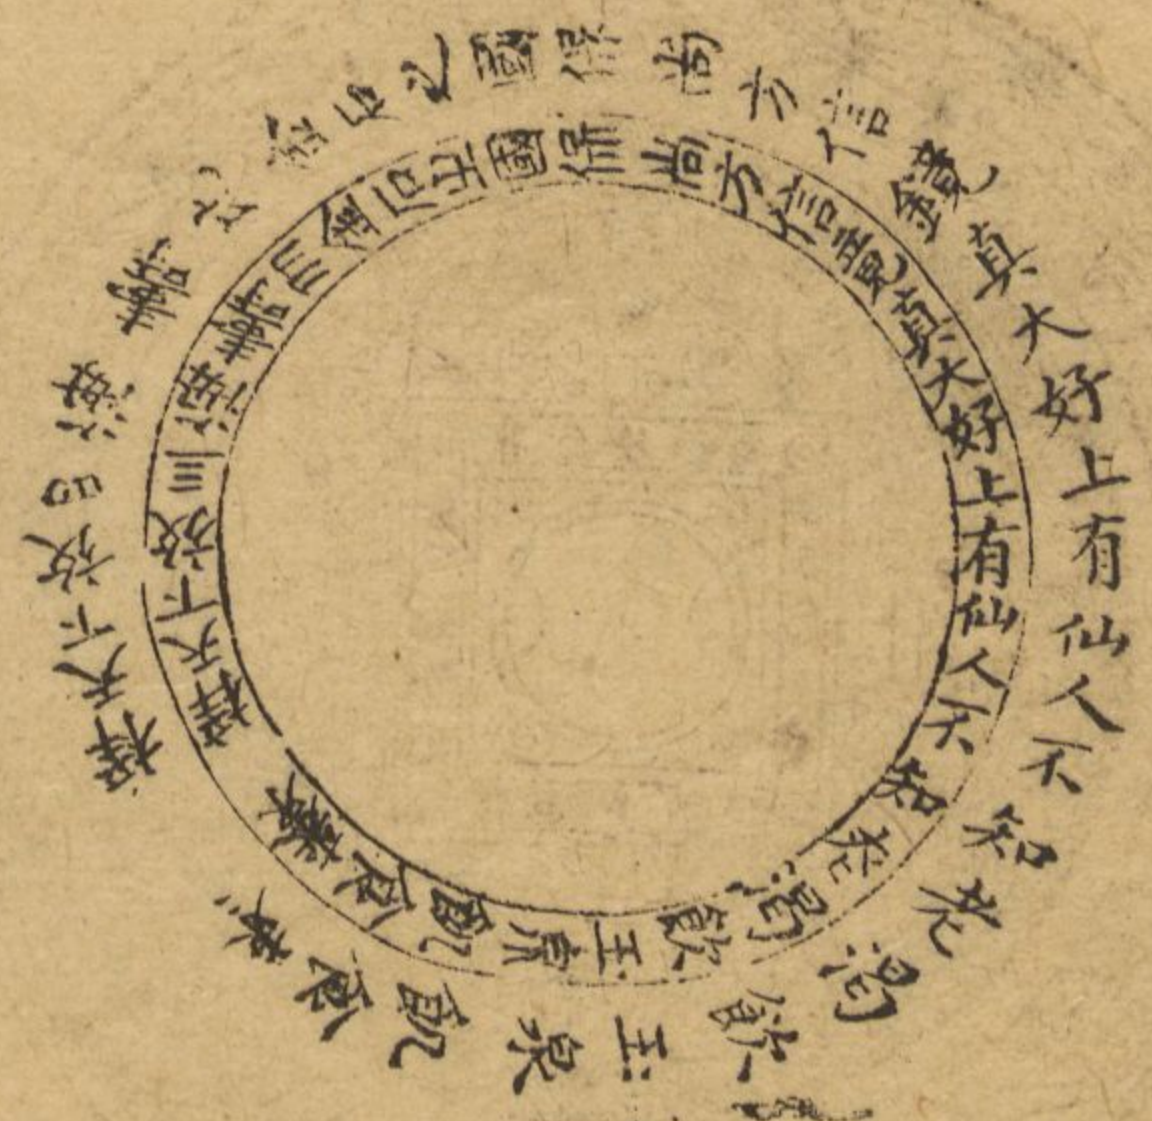 尚方信鏡真大好上有仙人不知老渴飲玉泉飢食棗天下放四海壽如金石之國保
尚方信竟真大好上有仙人不知老渴飲玉泉飢食棗天下放亖海壽金石㞢國保